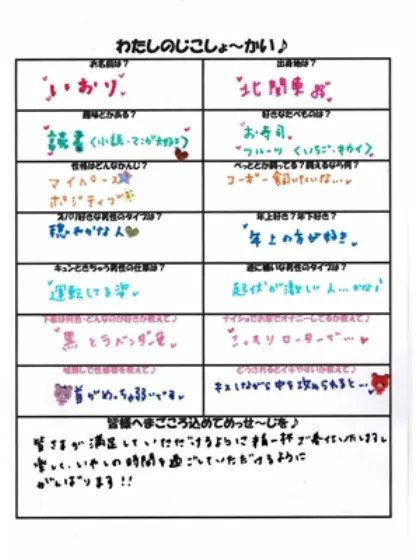 わたしのじこしょ～かい♪
お名前は？
いおり
出身地は？
北関東
趣味とかある？
読書（小説・マンガ大好き）
好きなたべものは？
お寿司
フルーツ（いちご・キウイ）
性格はどんなかんじ？
マイペース
ポジティブ
ペットとか飼ってる？飼えるなら何？
コーギー飼いたいな…
ズバリ好きな男性のタイプは？
穏やかな人
年上好き？年下好き？
年上の方が好き
キュンときちゃう男性の仕草は？
運転してる姿
逆に嫌いな男性のタイプは？
起伏が激しい人…かな
下着は何色・どんなのが好きか教えて♪
黒とラベンダー色
ナイショでお家でオナニーしてるか教えて♪
こっそりローターで…
性感帯を教えて♪
首がめっちゃ弱いです
どうされるとイキやすいか教えて♪
キスしながら中を攻められると…
皆様へまごころ込めてめっせ～じを♪
皆さまが満足していただけるように精一杯ご奉仕いたします
楽しく、いやしの時間を過ごしていただけるように
がんばります！！